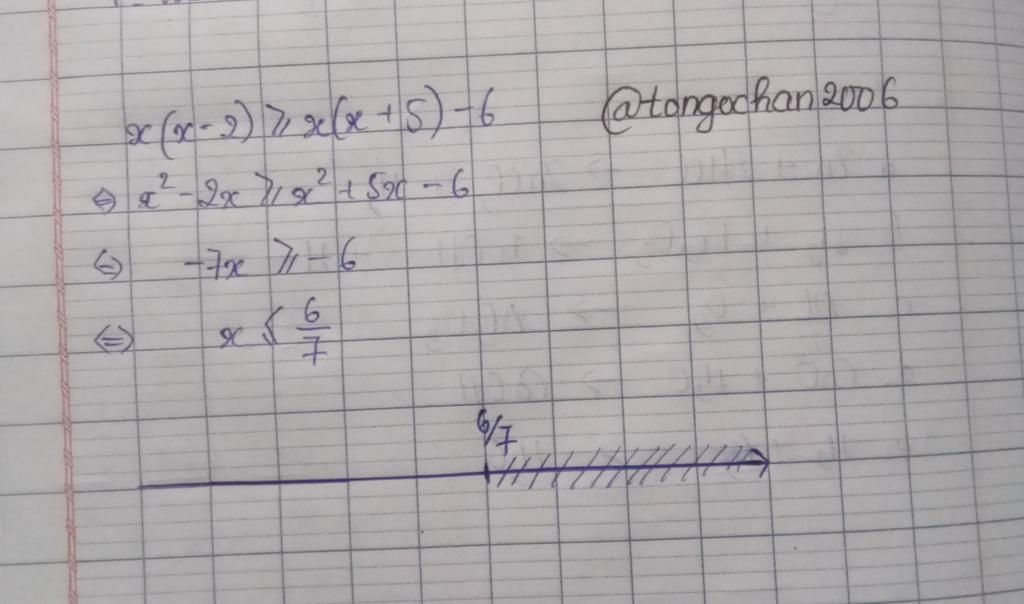 x(x-2) ⩾ x(x+5)-6
@tongochan2006
⇔ x² - 2x ⩾ x² + 5x - 6
⇔ -7x ⩾ -6
⇔ x ⩽ 6/7
6/7